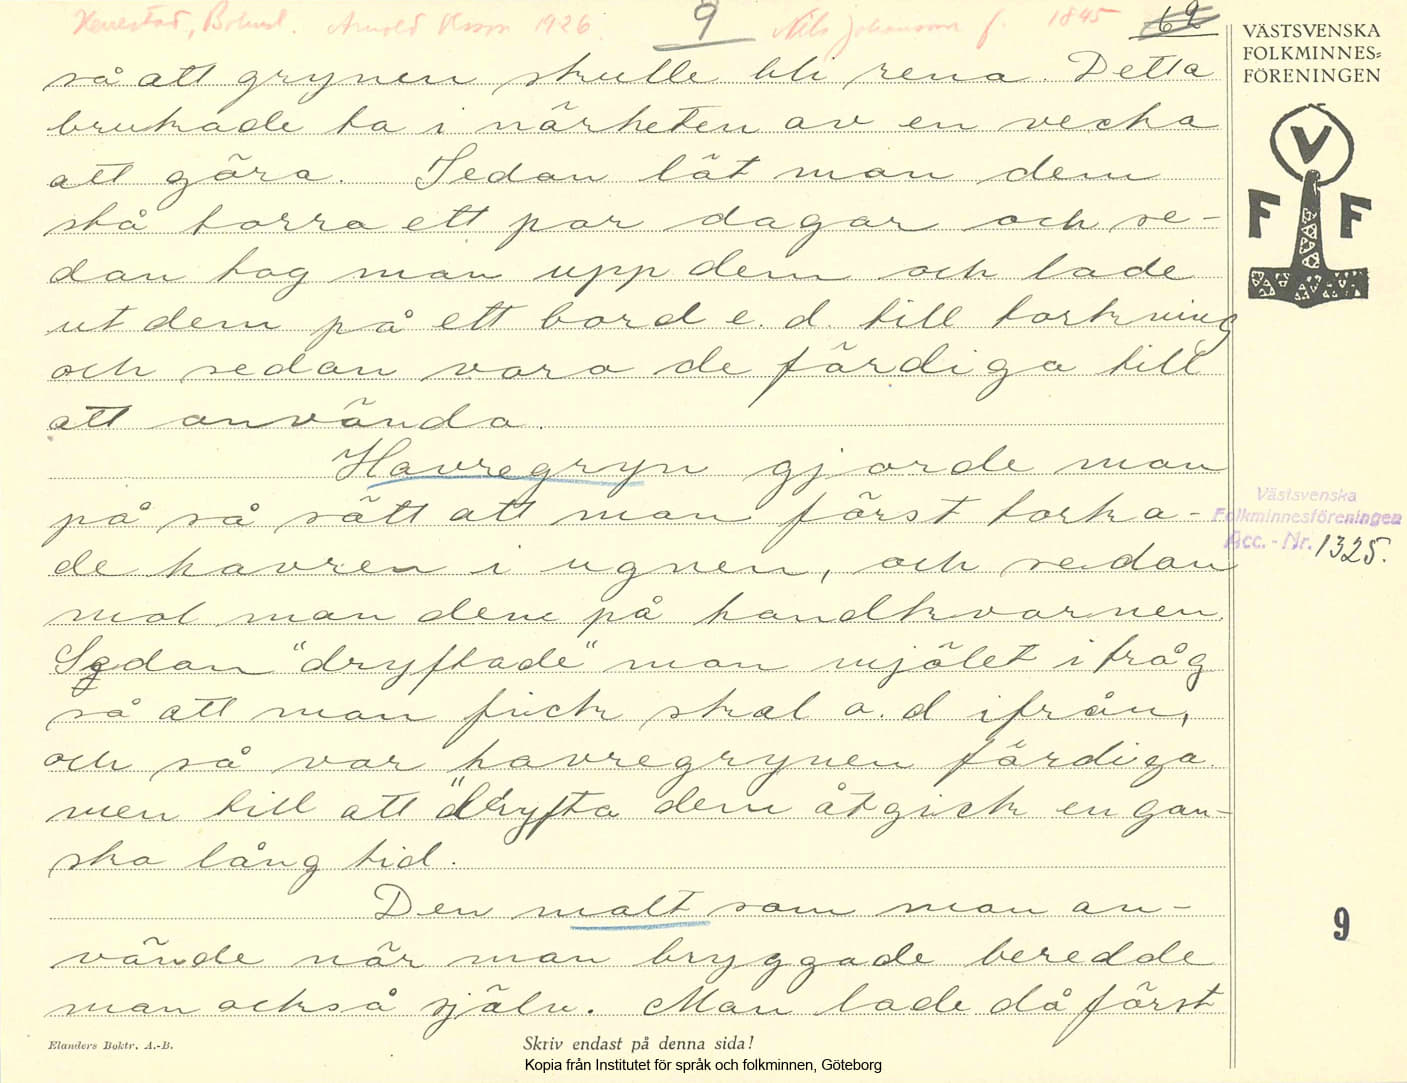 Bohusl. Arnold Olsson 1926 9 Nils Johansson f. 1845 62
så att grynen skulle bli rena. Detta
brukade ta i närheten av en vecka
att göra. Sedan lät man dem
stå torra ett par dagar och se-
dan tog man upp dem och lade
ut dem på ett bord e. d. till torkning
och sedan voro de färdiga till
att använda.
Havregryn gjorde man
på så sätt att man först torka-
de havren i ugnen, och sedan
mol man dem på handkvarnen.
Sedan "dryftade" man mjölet i tråg
så att man fick skal o. d ifrån,
och så var havregrynen färdiga.
men till att "dryfta dem åtgick en gan-
ska lång tid.
Den malt som man an-
vände när man bryggade beredde
man också själv. Man lade då först
VÄSTSVENSKA
FOLKMINNES=
FÖRENINGEN
V
F F
Västsvenska
Folkminnesföreningen
Acc.-Nr. 1325.
9
Elanders Boktr. A.-B.
Skriv endast på denna sida!
Kopia från Institutet för språk och folkminnen, Göteborg